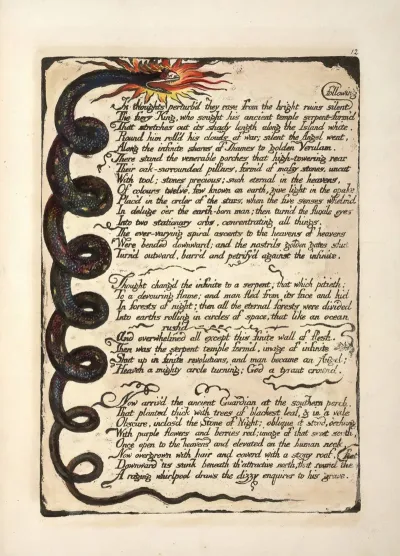 12
following
In thoughts perturb'd they rose from the bright ruins silent
The fiery King, who sought his ancient temple serpent-form'd
That stretches out its shady length along the Island white.
Round him roll'd his clouds of war; silent the Angel went,
Along the infinite shores of Thames to golden Verulam.
There stand the venerable porches that high-towering rear
Their oak-surrounded pillars, form'd of massy stones, uncut
With tool; stones precious; such eternal in the heavens,
Of colours twelve, few known on earth, give light in the opake
Plac'd in the order of the stars, when the five senses whelm'd
In deluge o'er the earth-born man; then turn'd the fluxile eyes
Into two stationary orbs, concentrating all things.
The ever-varying spiral ascents to the heavens of heavens
Were bended downward; and the nostrils golden gates shut
Turn'd outward, barr'd and petrify'd against the infinite.
Thought chang'd the infinite to a serpent; that which pitieth:
To a devouring flame; and man fled from its face and hid
In forests of night; then all the eternal forests were divided
Into earths rolling in circles of space, that like an ocean
rush'd
And overwhelmed all except this finite wall of flesh.
Then was the serpent temple form'd, image of infinite
Shut up in finite revolutions, and man became an Angel;
Heaven a mighty circle turning; God a tyrant crown'd.
Now arriv'd the ancient Guardian at the southern porch,
That planted thick with trees of blackest leaf, & in a vale
Obscure, inclos'd the Stone of Night; oblique it stood, o'erhung
With purple flowers and berries red; image of that sweet south,
Once open to the heavens and elevated on the human neck,
Now overgrown with hair and coverd with a stony roof,
Downward 'tis sunk beneath th' attractive north, that round the
feet
A raging whirlpool draws the dizzy enquirer to his grave: